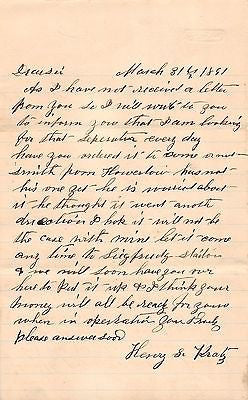 Dear Sir March 31st 1891
As I have not received a letter
from you So I will write to you
to inform you that I am looking
for that Seperator every day
have you ordered it to come a mr
smith from Hower has not
his one yet he is worried about
it he thought it went another
direction I hope it will not be
the case with mine let it come
any time to Siegfrieds Station
& we will soon have you over
here to Put it up & I think your
money will all be ready for you
when in operation Yours Truly
please answer soon
Henry S. Kratz